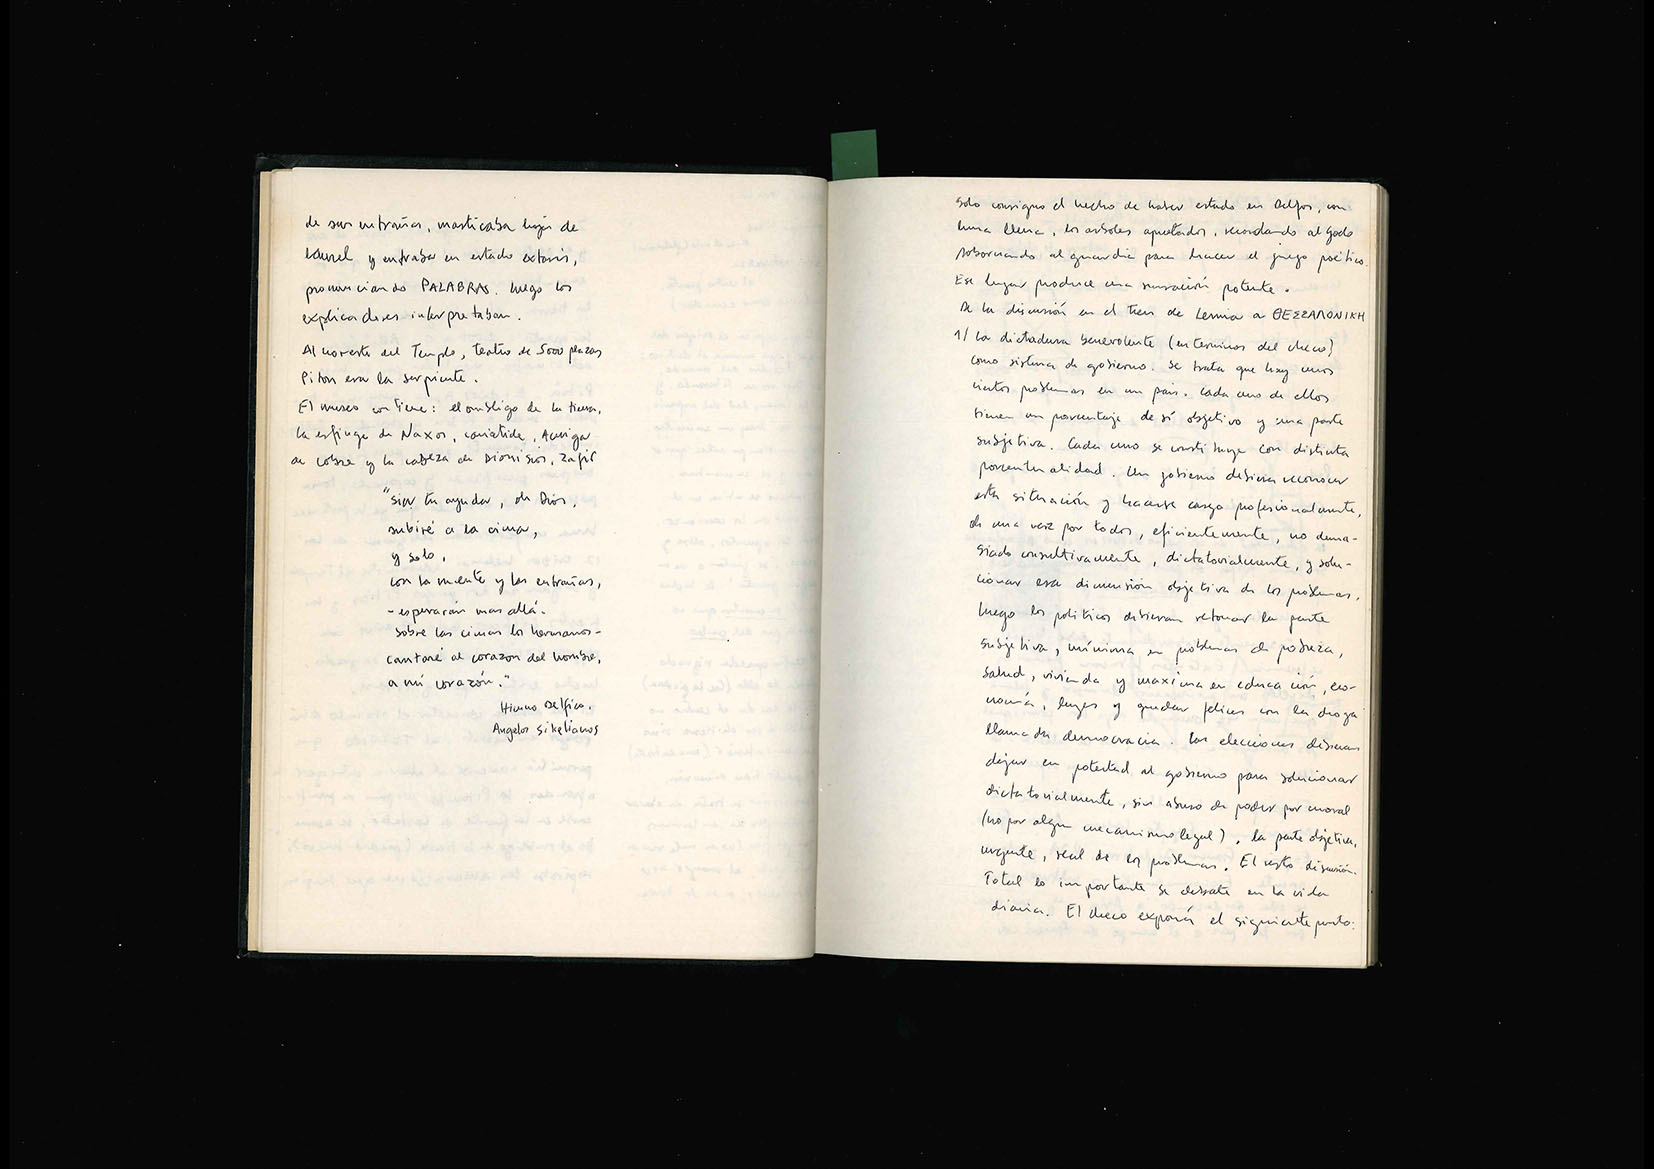 de sus entrañas, masticaba hojas de
laurel y entraba en estado extasis,
pronunciando PALABRAS. luego los
explicadores interpretaban.
Al noreste del Templo, teatro de 5000 plazas
Piton era la serpiente.
El museo contiene: el ombligo de la tierra,
la esfinge de Naxos, cariatide, Auriga
de cobre y la cabeza de Dionisios,
"sin tu ayuda, oh Dios,
subiré a la cima,
y solo,
con la mente y las entrañas,
- esperarán mas allá.
sobre las cimas los hermanos-
cantaré al corazon del hombre,
a mi corazón."
Himno Delfico.
Angelos Sikelianos
Solo consigno el hecho de haber estado en Delfos, con
luna llena, los arboles apuntados, recordando al Godo
sobornando al guardia para hacer el juego poético.
Ese lugar produce una sensación potente.
De la discusión en el tren de Lamia a ΘΕΣΣΑΛΟΝΙΚΗ
1/ La dictadura benevolente (en terminos del checo)
como sistema de gobierno. Se trata que hay unos
ciertos problemas en un pais. Cada uno de ellos
tienen un porcentaje de sí objetivo y una parte
subjetiva. Cada uno se constituye con distinta
porcentualidad. Un gobierno debiera reconocer
esta situación y hacerse cargo profesionalmente,
de una vez por todos, eficientemente, no dema-
siado consultivamente, dictatorialmente, y solu-
cionar esa dimensión objetiva de los problemas.
luego los politicos debieran retomar la parte
subjetiva, mínima en problemas de pobreza,
salud, vivienda y maxima en educación, eco-
nomía, leyes y quedar felices con la droga
llamada democracia. Las elecciones debieran
dejar en potestad al gobierno para solucionar
dictatorialmente, sin abuso de poder por moral
(no por algun mecanismo legal), la parte objetiva,
urgente, real de los problemas. El resto discusión.
Total lo importante se debate en la vida
diaria. El checo exponía el siguiente punto: